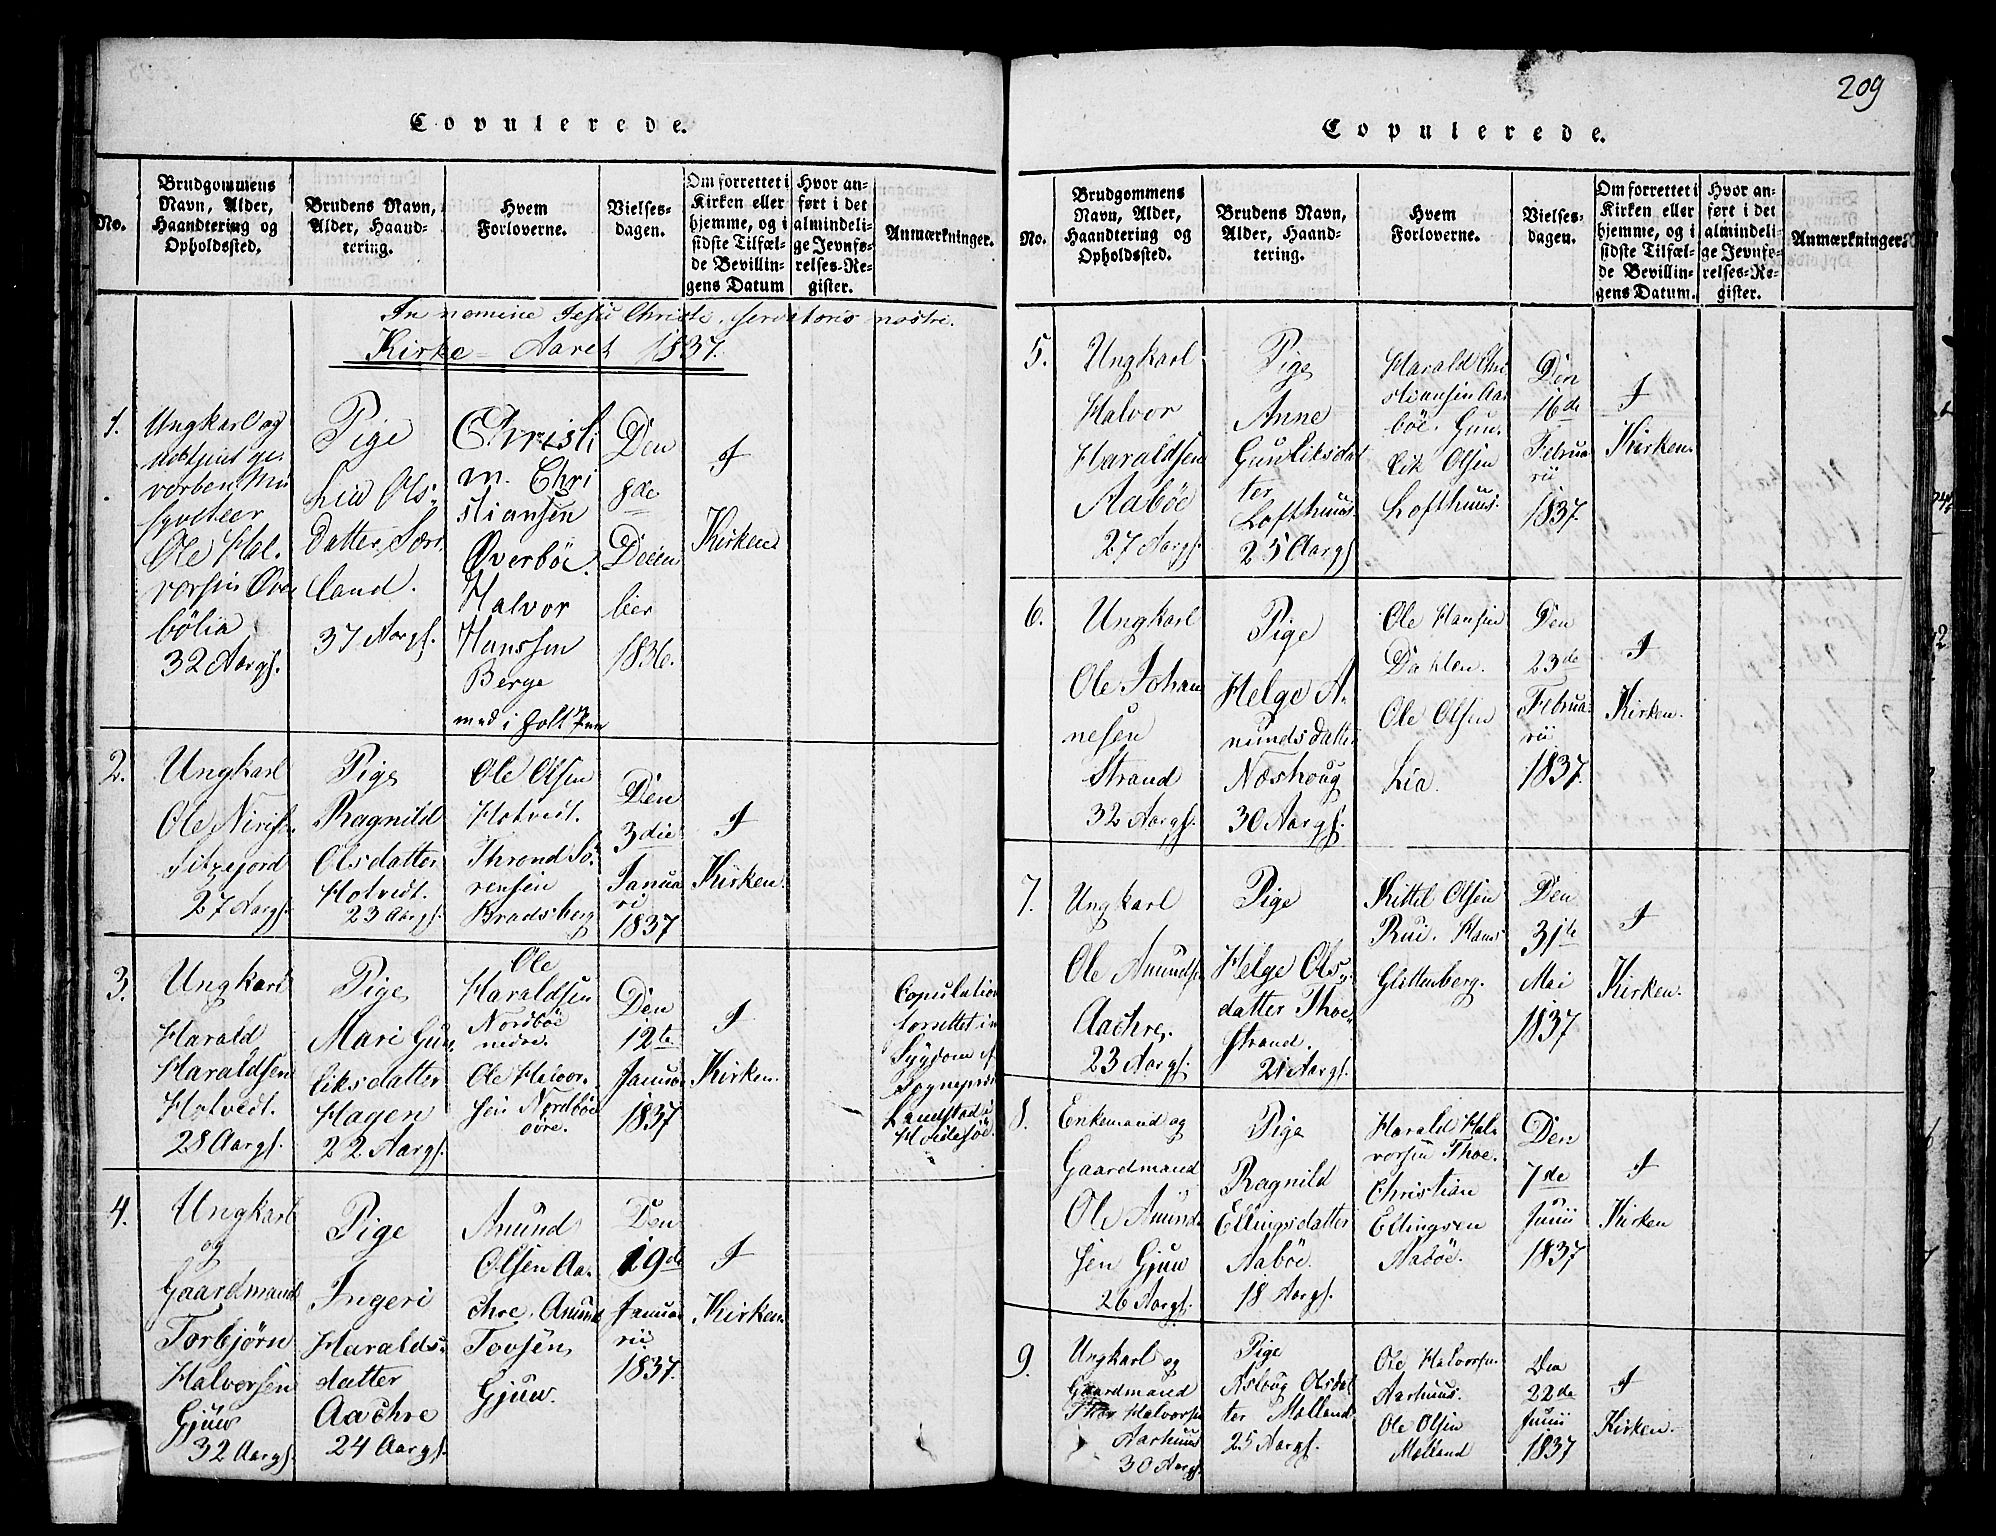 Copulerede.
No.
Brudgommens
Navn, Alder,
Haandtering og
Opholdssted.
Brudens Navn,
Alder, Haand-
tering.
Hvem
Forloverne.
Vielses-
dagen.
Om forrettet i
Kirken eller
hjemme, og i
sidste Tilfæl-
de Bevillin-
gens Datum
Hvor an-
ført i det
almindeli-
ge Jevnfø-
relses-Re-
gister.
Anmærkninger.
In nomine Jesu Christi, servatoris nostri.
Kirke-Aaret 1837.
1.
Ungkarl og
Ole Hal-
vorsen Øve
bölia
32 Aargl.
Pige
Liv Ols-
datter
land.
37 Aargl.
Christi
m. Chri
stiansen
Øverböe.
Halvor
Hanssen
Berge
Den
8de
Decem
ber
1836.
I
Kirken
2.
Ungkarl
Ole
Sitzejord
27 Aargl.
Pige
Ragnild
Olsdatter
Hotvedt.
23 Aargl.
Ole Olsen
Hotvedt.
Thrond Sö-
rensen
Bradsberg
Den
3die
Janua
ri
1837
I
Kirken.
3.
Ungkarl
Harald
Haraldsen
Hotvedt.
28 Aargl.
Pige
Mari Gun
liksdatter
Hagen
22 Aargl.
Ole
Haraldsen
Nordböe
nedre.
Ole Halvor-
sen Nordböe
övre.
Den
12te
Januar
1837
I
Kirken.
Copulation
forrettet i
Sygdom af
Sognepræst
Landstad i
Hvidesöe.
4.
Ungkarl
og
Gaardmand
Torbjørn
Halvorsen
Gjuv
32 Aargl.
Pige
Ingeri
Haralds-
datter
Aachre
24 Aargl.
Amund
Olsen Aa-
chre. Amund
Tovsen
Gjuv.
Den
19de
Janua
rii
1837.
I
Kirken.
209
Copulerede.
No.
Brudgommens
Navn, Alder,
Haandtering og
Opholdssted.
Brudens Navn,
Alder, Haand-
tering.
Hvem
Forloverne.
Vielses-
dagen.
Om forrettet i
Kirken eller
hjemme, og i
sidste Tilfæl-
de Bevillin-
gens Datum.
Hvor an-
ført i det
almindeli-
ge Jevnfø-
relses-Re-
gister.
Anmærkninger.
5.
Ungkarl
Halvor
Haraldsen
Aaböe
27 Aargl.
Pige
Anne
Gunliksdat
ter
Lofthuus.
25 Aargl
Harald Chri
stiansen Aa
böe. Gun-
lik Olsen
Lofthuus.
Den
16de
Februa
rii
1837.
I
Kirken.
6.
Ungkarl
Ole Johan
nesen
Strand
32 Aargl.
Pige
Helge A-
mundsdatter
Næshoug
30 Aargl.
Ole Hansen
Dahlen.
Ole Olsen
Lia.
Den
23de
Februa-
rii
1837.
I
Kirken.
7.
Ungkarl
Ole Amunds.
Aachre.
23 Aargl.
Pige
Helge Ols-
datter Thoe-
strand.
21 Aargl.
Kittel Olsen
Rui. Hans
Glittenberg.
Den
31te
Mai
1837
I
Kirken.
8.
Enkemand og
Gaardmand
Ole Amund-
sen Gjuv
26 Aargl.
Pige
Ragnild
Ellingsdatter
Aaböe.
18 Aargl.
Harald Hal-
vorsen Thoe.
Christian
Ellingsen
Aaböe.
Den
7de
Junii
1837
I
Kirken
9.
Ungkarl og
Gaardmand
Thor Halvorsen
Aarhuus
30 Aargl.
Pige
Asloug Olsdat
ter Molland
25 Aargl.
Ole Halvorsen
Aarhuus.
Ole Olsen
Molland
Den
22de
Junii
1837
I
Kirken.